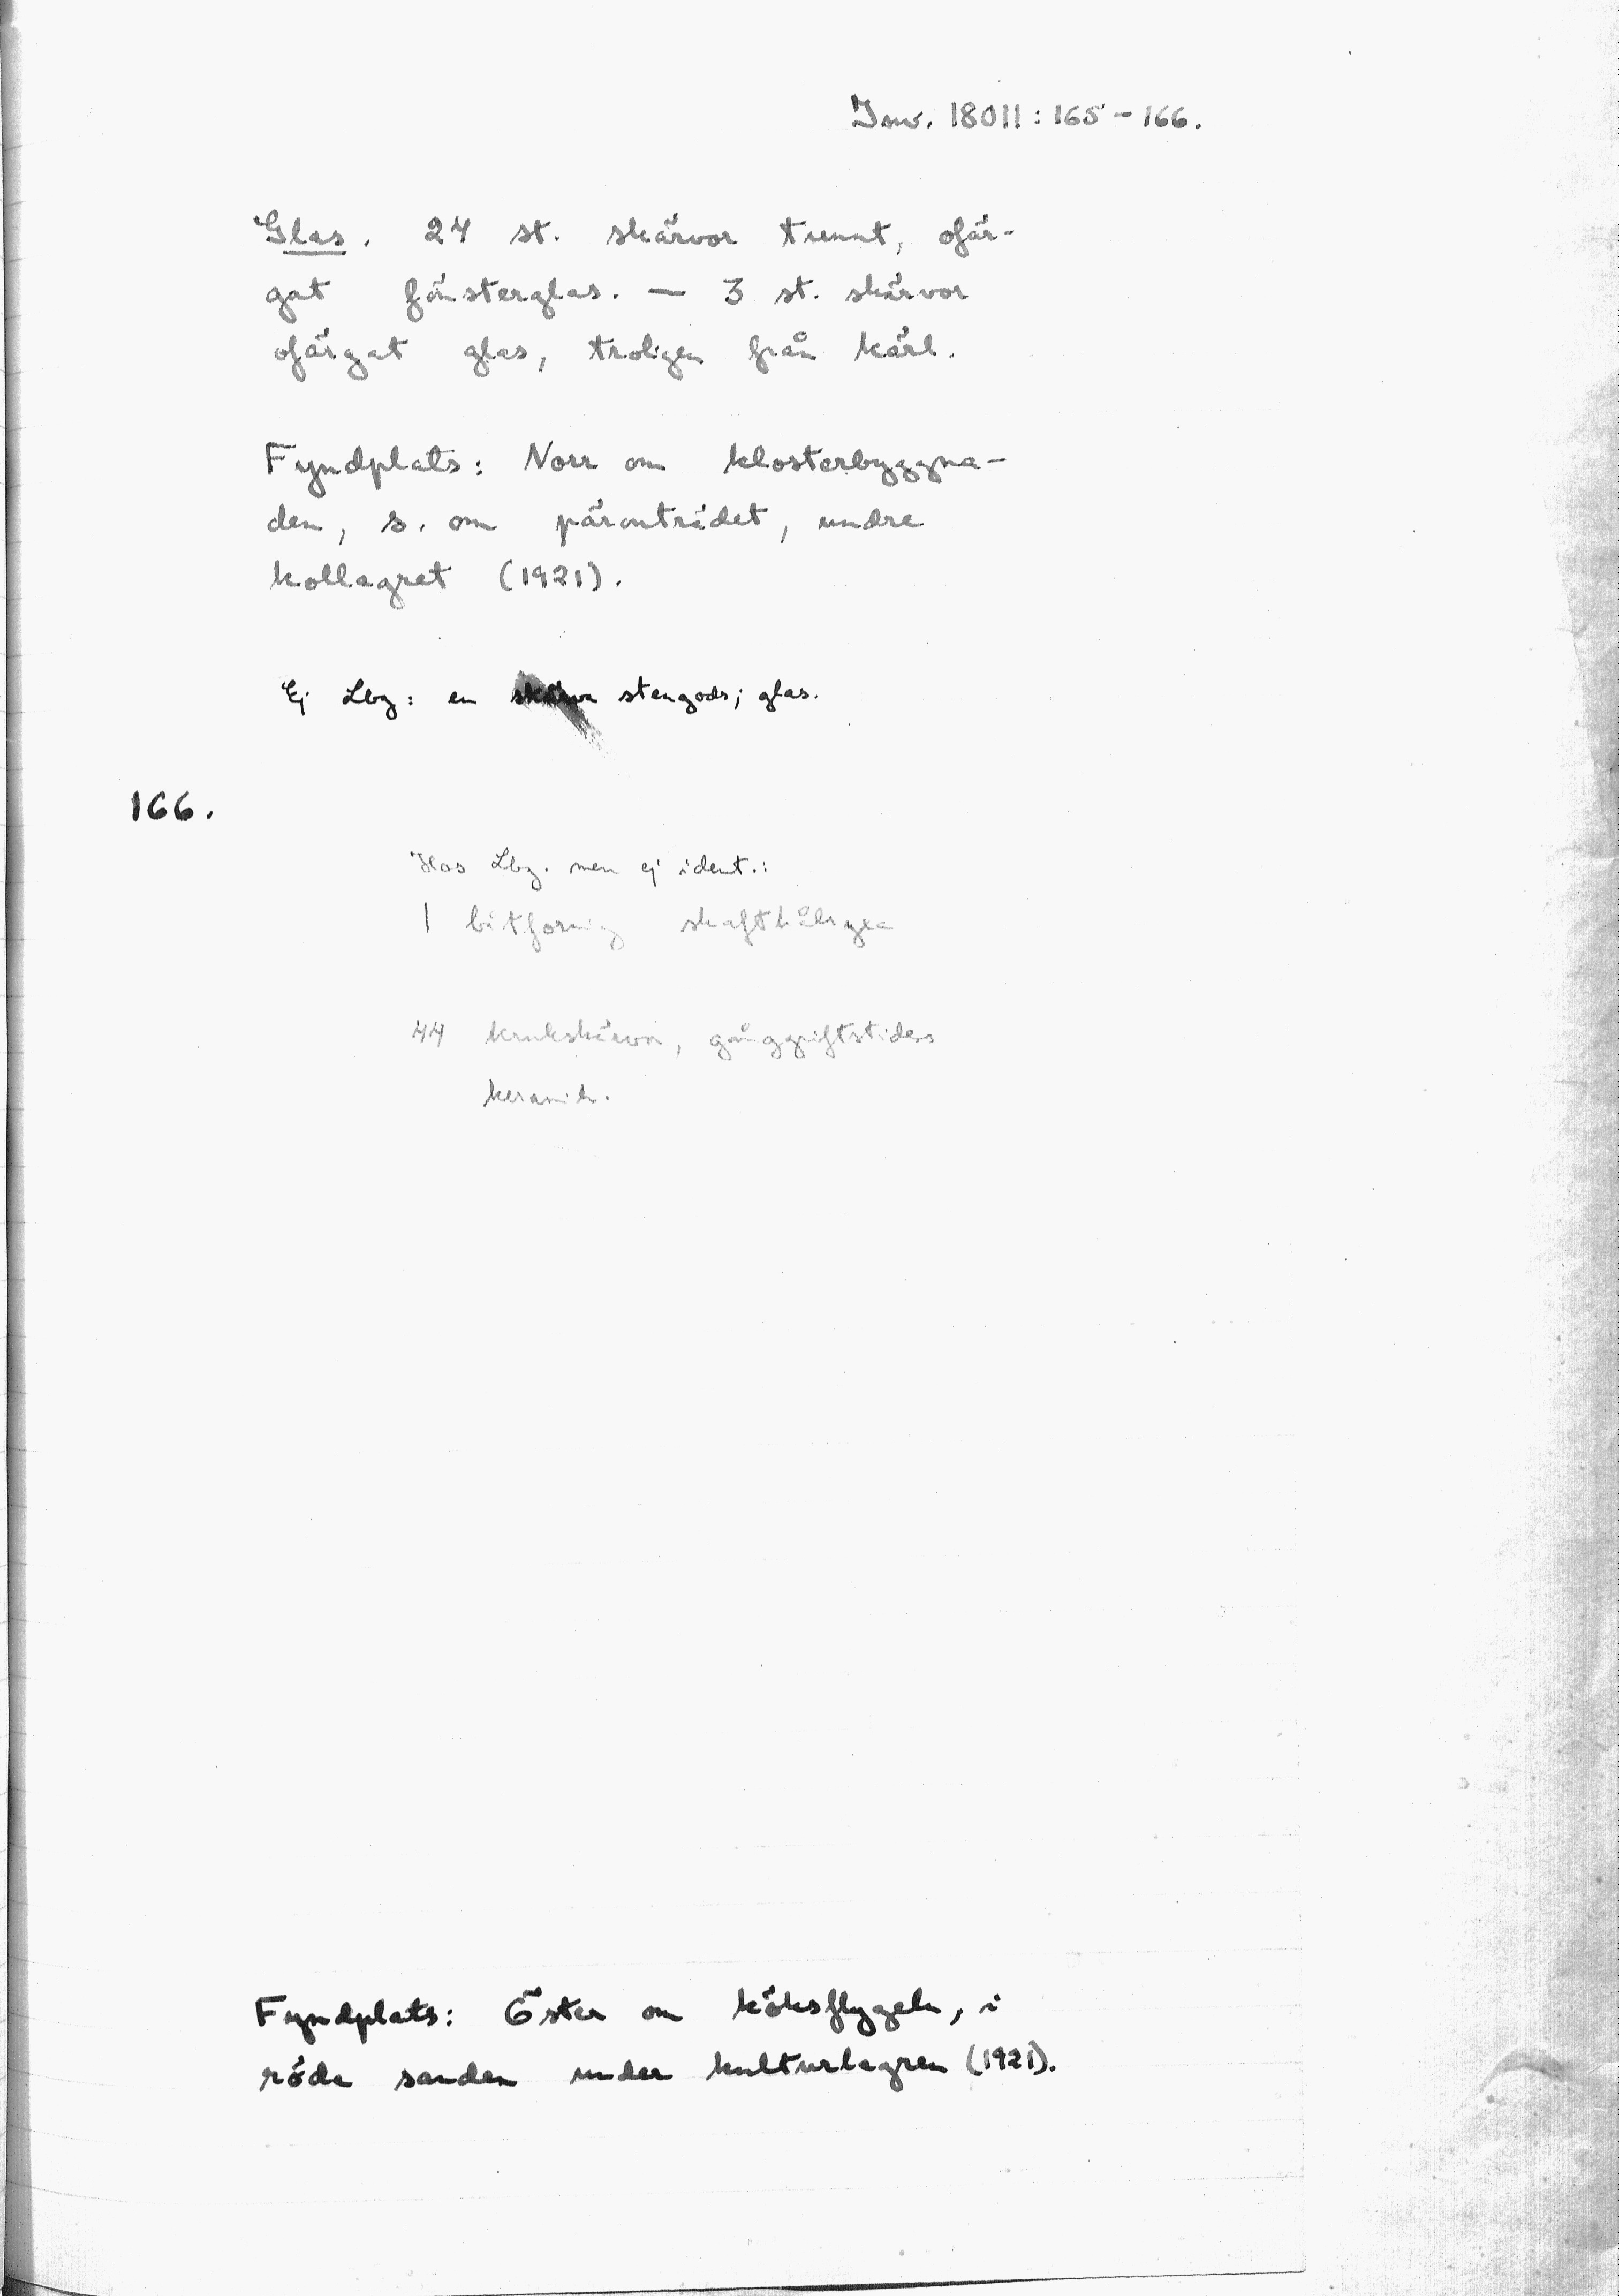 Inv. 18011:165-166.
Glas. 24 st. skärvor tunnt, ofär-
gat fönsterglas. — 3 st. skärvor
ofärgat glas, troligen från kärl.
Fyndplats: Norr om klosterbyggna-
den, s. om päronträdet, undre
kollagret (1921).
Ej Lbg: en skärva stengods; glas.
166.
Hos Lbg. men ej ident.:
1 båtformig skafthålsyxa
44 krukskärvor, gånggriftstidens
keramik.
Fyndplats: Öster om köksflygeln, i
röda sanden under kulturlagren (1921).